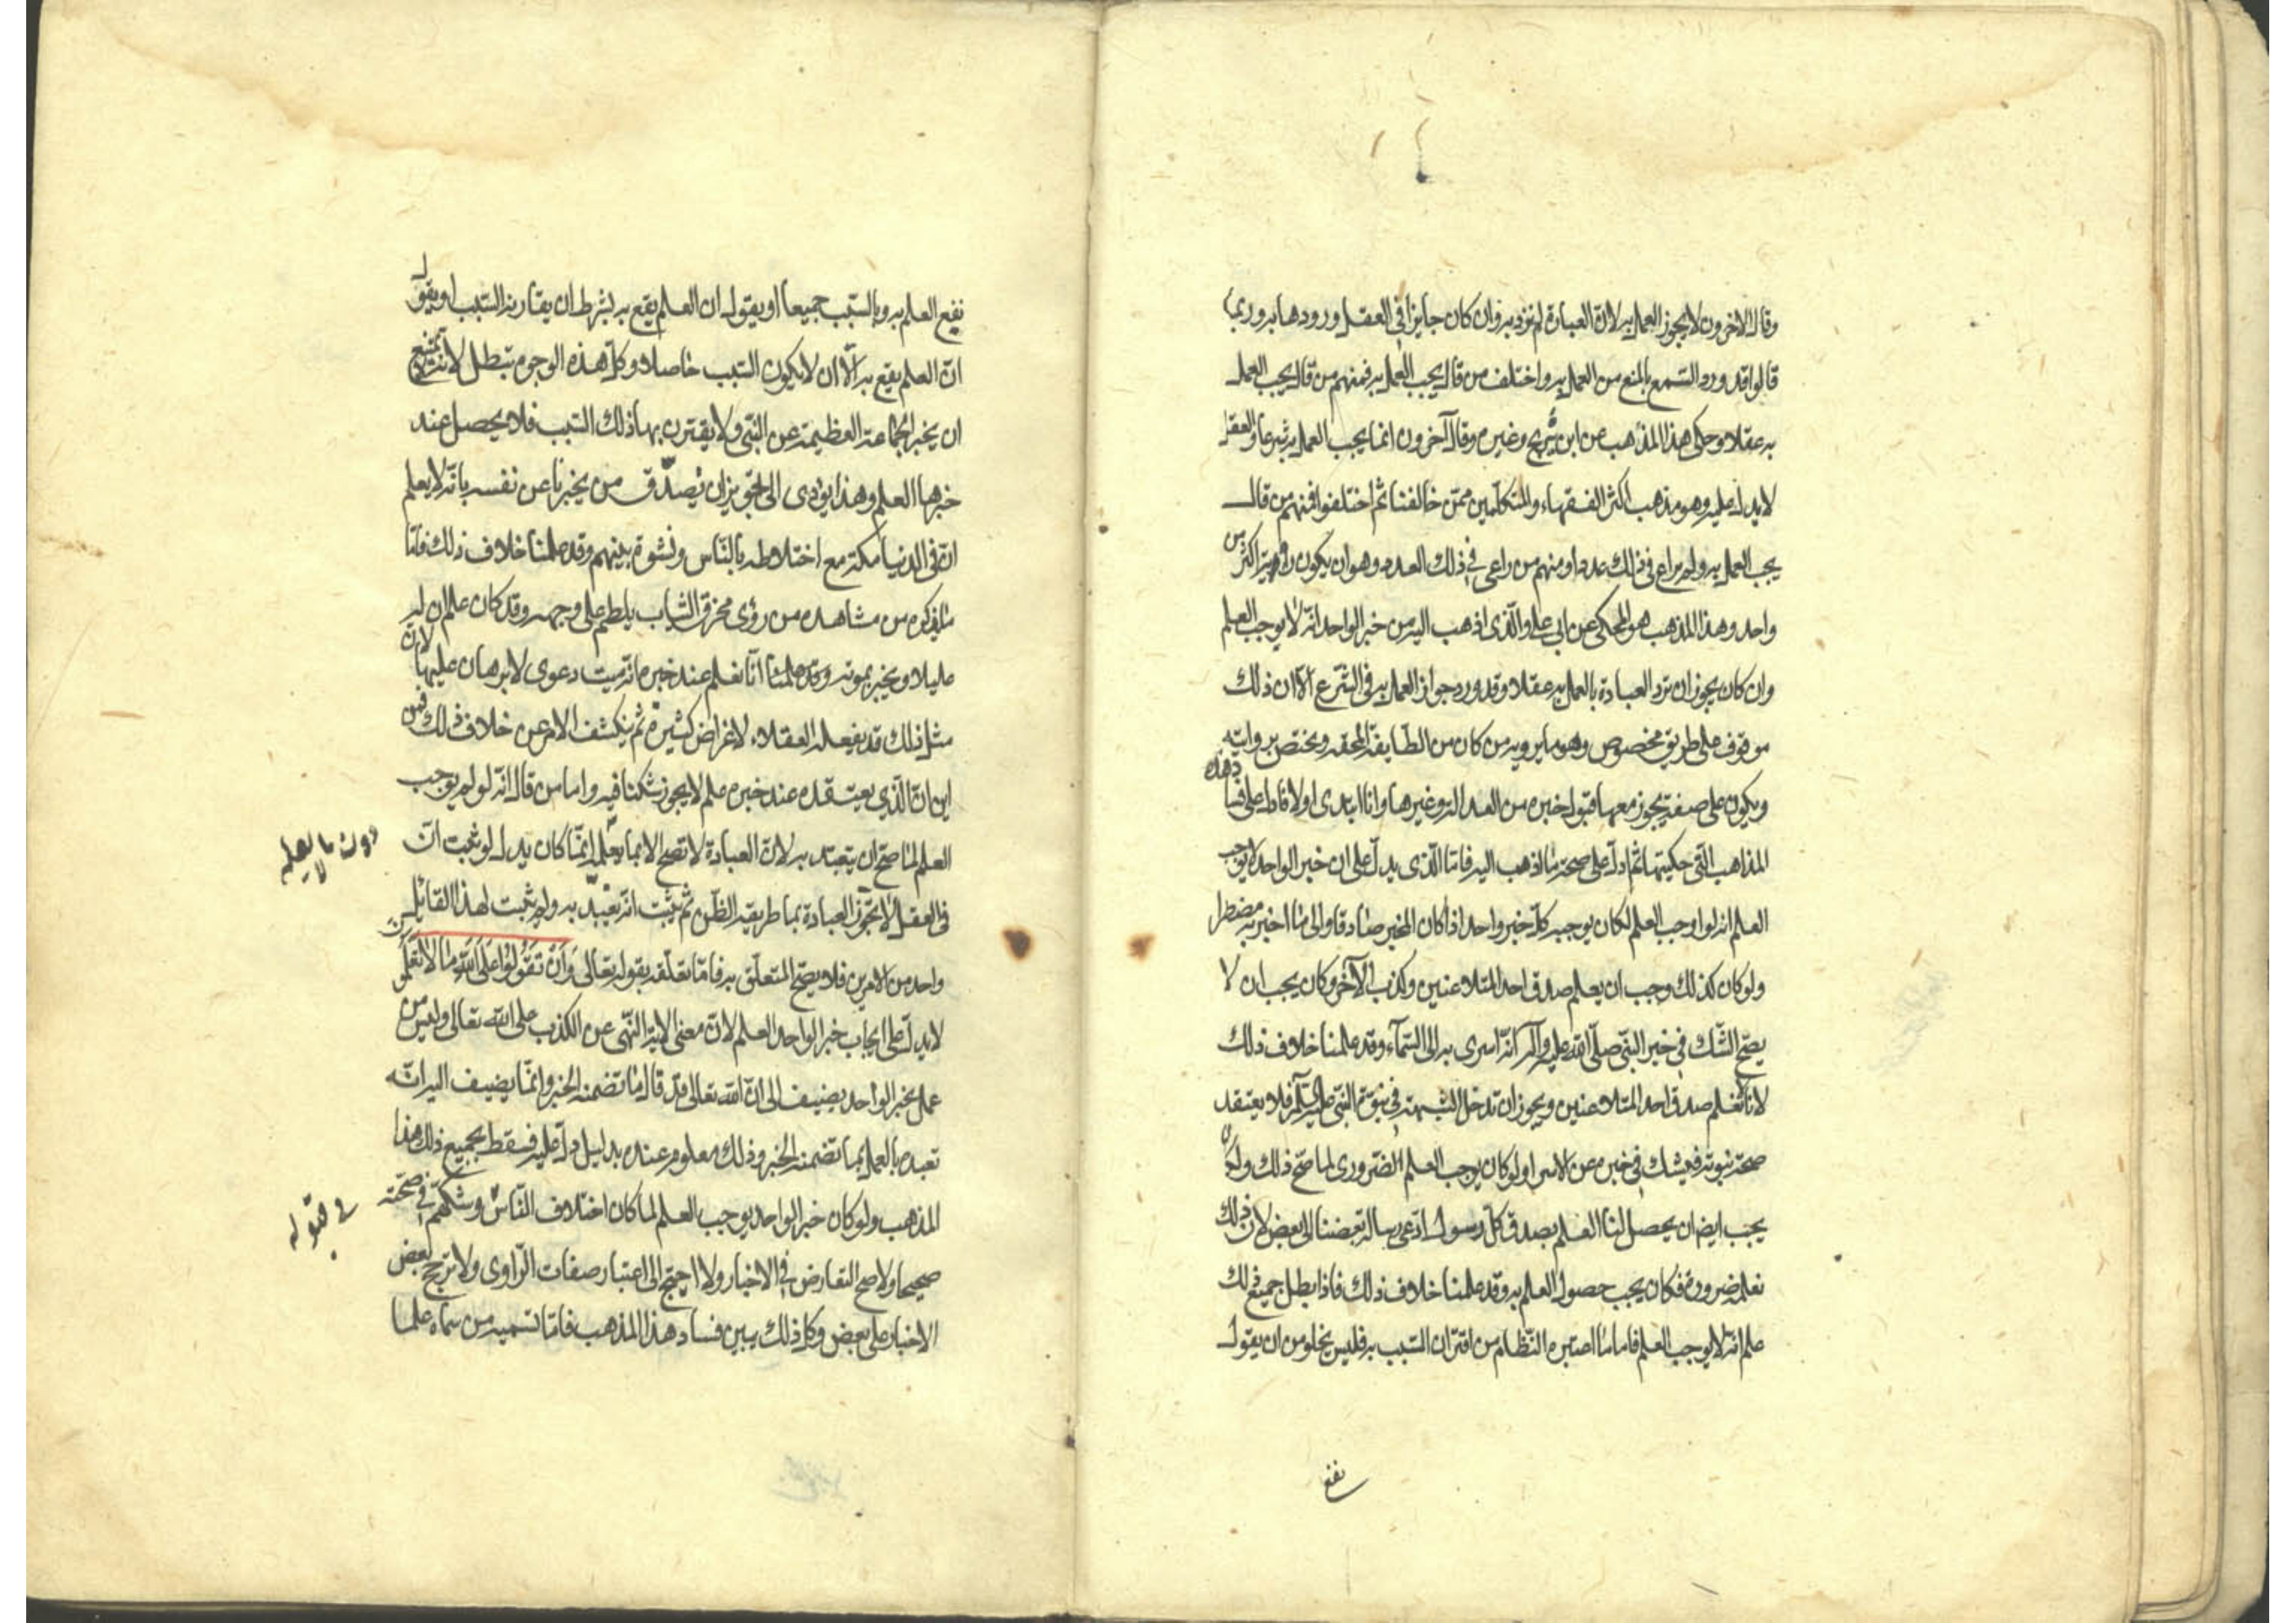 وقال الاخرون لا يجوز العمل به لان العبادة لم ترد به وان كان جايزا في العقل ورودها به وربما
قالوا قد ورد السمع بالمنع من العمل به واختلف من قال يجب العمل به فمنهم من قال يجب العمل
به عقلا وحكى هذا المذهب عن ابن شريح وغيره وقال آخرون انما يجب العمل به شرعا والعقل
لا يدل عليه وهو مذهب اكثر الفقهاء والمتكلمين ممّن خالفنا ثم اختلفوا فمنهم من قال
يجب العمل به ولم يراع في ذلك عددا ومنهم من راعى في ذلك العدد وهو ان يكون رواته اكثر من
واحد وهذا المذهب هو المحكى عن ابى على والّذى اذهب اليه من خبر الواحد انّه لا يوجب العلم
وان كان يجوز ان ترد العبادة بالعمل به عقلا وقد ورد جواز العمل به في الشّرع الّا ان ذلك
موقوف على طريق مخصوص وهو ما يرويه من كان من الطّايفة المحقّه ويختص بروايته
ويكون على صفة يجوز معها قبول خبره من العدالة وغيرها وانا ابتدى اولا فادل على فساد هذه
المذاهب الّتى حكيتها ثم ادلّ على صحة ما اذهب اليه فامّا الّذى يدلّ على ان خبر الواحد لا يوجب
العلم انه لو اوجب العلم لكان يوجبه كلّ خبر واحد اذا كان المخبر صادقا والى ما اخبر به مضطرا
ولو كان كذلك وجب ان يعلم صدق احد المتلاعنين وكذب الآخر وكان يجب ان لا
يصّح الشّك في خبر النبّى صلّى الله عليه وآله انّه اسرى به الى السّمآء وقد علمنا خلاف ذلك
لانا لا نعلم صدق احد المتلاعنين ويجوز ان تدخل الشبهة في نبوّة النبّى عليه السلم فلا يعتقد
صحة نبوته فيشك في خبره عن الاسرا ولو كان يوجب العلم الضّرورى لما صّح ذلك ولكان
يجب ايض ان يحصل لنا العلم بصدق كلّ رسول ادّعى رسالة بعضنا الى بعض لان ذلك
نعلمه ضرورة فكان يجب حصول العلم به وقد علمنا خلاف ذلك فاذا بطل جميع ذلك
علم انّه لا يوجب العلم فاما ما اعتبره النّظام من اقتران السّبب به فليس يخلو من ان يقول
نقع
نقع العلم به وبالسّبب جميعا او يقول ان العلم يقع به بشرط ان يقارنه السّبب او يقول
انّ العلم يقع به الّا ان لا يكون السّبب حاصلا وكلّ هذه الوجوه تبطل لانّه لا يمتنع
ان يخبر الجماعة العظيمة عن النبّى ولا يقترن بها ذلك السّبب فلا يحصل عند
خبرها العلم وهذا يؤدى الى تجويز ان نصدّق من يخبرنا عن نفسه بانّه لا يعلم
انّ في الدنيا مكة مع اختلاطه بالنّاس ونشوه بينهم وقد علمنا خلاف ذلك فامّا
ما يذكره من مشاهده من رؤى مخرق الثياب يلطم على وجهه وقد كان علم ان له
عليلا ويخبر بموته وقد علمنا انّا نعلم عند خبره انه ميت دعوى لا برهان عليها لان
مثل ذلك قد يفعله العقلاء لاغراض كثيرة ثم ينكشف الامر عن خلاف ذلك فمن
اين انّ الّذي يعتقده عند خبره علم لا يجوز شكنا فيه واما من قال انّه لو لم يوجب
العلم لما صّح ان يتعبّد به لان العبادة لا تصح الا بما يعلم انّما كان يدل لو ثبت انّ
دون ما لا يعلم
في العقل لا تجوّز العبادة بما طريقه الظّن ثم يثبت انّه تعبّد به ولم يثبت لهذا القائل
واحد من الامرين فلا يصحّ المتعلّق به فامّا تعلّقه بقوله تعالى وَاَنْ تَقُولُوا عَلَى اللهِ مَا لَا تَعْلَمُونَ
لا يدلّ على ايجاب خبر الواحد العلم لانّ معنى الاية النّهى عن الكذب على الله تعالى وليس من
عمل بخبر الواحد يضيف الى انّ الله تعالى قد قال ما تضمنه الخبر وانّما يضيف اليه انّه
تعبده بالعمل بما تضمنه الخبر وذلك معلوم عنده بدليل دلّ عليه فسقط بجميع ذلك هذا
المذهب ولو كان خبر الواحد يوجب العلم لما كان اختلاف النّاس وشكّهم في صحّته
في قبوله
صحيحا ولا صح التعارض في الاخبار ولا احتيج الى اعتبار صفات الرّاوى ولا ترجّح بعض
الاخبار على بعض وكل ذلك يبين فساد هذا المذهب فامّا تسميه من سماه علما